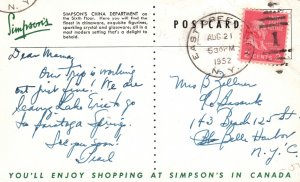 N.Y.
Simpson's
SIMPSON'S CHINA DEPARTMENT on
the Sixth floor. Here you will find the
finest in chinaware, exquisite figurines,
sparkling crystal and glassware, all in
a most artistic setting that's a delight to
behold.
POSTCARD
EAST
AUG 21
5 30 PM
1952
N.Y.
2 CENTS 2
Dear Mama,
Our trip is working
out just fine. We are
leaving Lake Erie to go
to Saratoga Springs.
See you soon.
Mrs B
143 Beach 125 St
Belle Harbor
N.Y.C
YOU'LL ENJOY SHOPPING AT SIMPSON'S IN CANADA